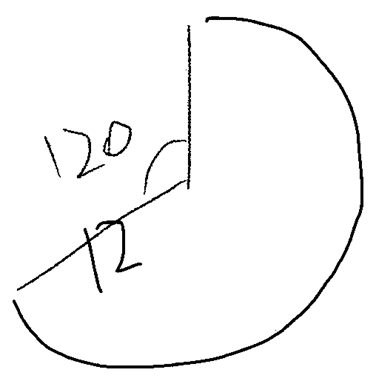 120
12